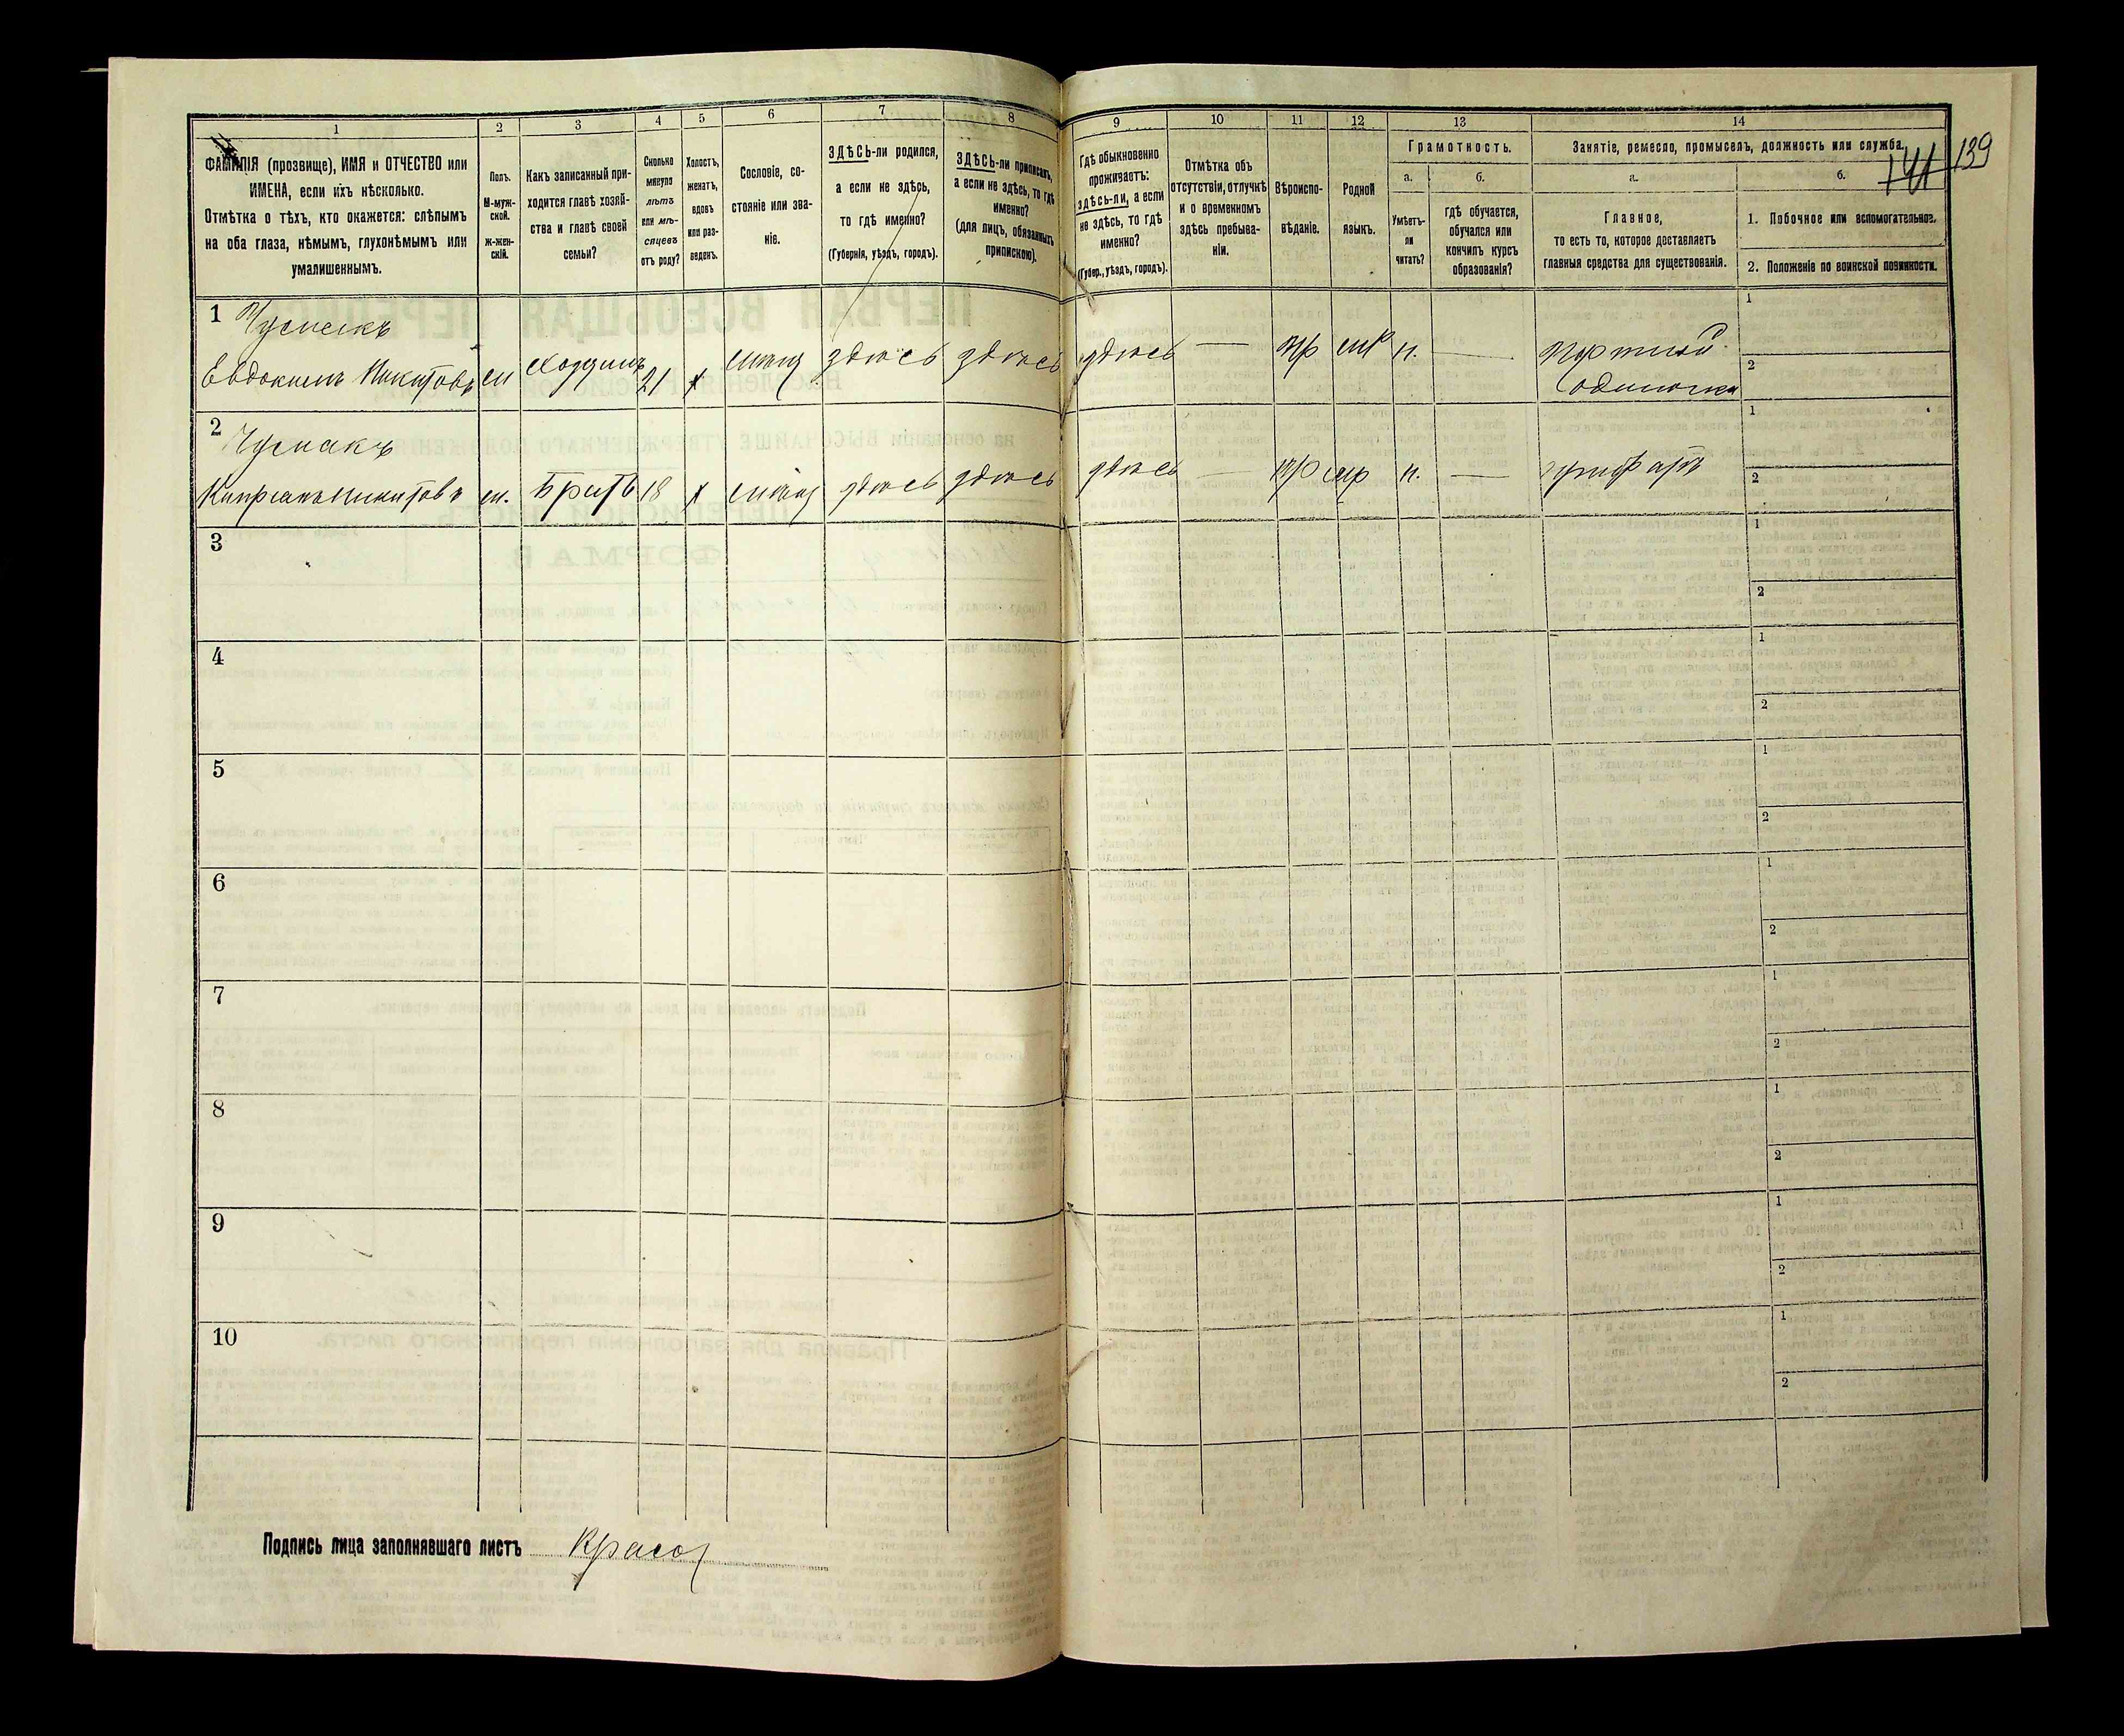 1 2 3 4 5 6 7 8 9 10 11 12 13 14
ФАМИЛІЯ (прозвище), ИМЯ и ОТЧЕСТВО или
ИМЕНА, если ихъ нѣсколько.
Отмѣтка о тѣхъ, кто окажется: слѣпымъ
на оба глаза, нѣмымъ, глухонѣмымъ или
умалишеннымъ.
Полъ.
М-муж-
ской.
Ж-жен-
скій.
Какъ записанный при-
ходится главѣ хозяй-
ства и главѣ своей
семьи?
Сколько
минуло
лѣтъ
или мѣ-
сяцевъ
отъ роду?
Холостъ,
женатъ,
вдовъ
или раз-
веденъ.
Сословіе, со-
стояніе или зва-
ніе.
ЗДѢСЬ-ли родился,
а если не здѣсь,
то гдѣ именно?
(Губернія, уѣздъ, городъ).
ЗДѢСЬ-ли приписанъ,
а если не здѣсь, то гдѣ
именно?
(для лицъ, обязанныхъ
припискою).
Гдѣ обыкновенно
проживаетъ:
здѣсь-ли, а если
не здѣсь, то гдѣ
именно?
(Губер., уѣздъ, городъ).
Отмѣтка объ
отсутствіи, отлучкѣ
и о временномъ
здѣсь пребыва-
ніи.
Вѣроиспо-
вѣданіе.
Родной
языкъ.
Грамотность.
а.
Умѣетъ-
ли
читать?
б.
гдѣ обучается,
обучался или
кончилъ курсъ
образованія?
Занятіе, ремесло, промыселъ, должность или служба.
141 139
а.
Главное,
то есть то, которое доставляетъ
главныя средства для существованія.
б.
1. Побочное или вспомогательное.
2. Положеніе по воинской повинности.
1
Евдокимъ Никитовъ м 21 х здѣсь здѣсь здѣсь — н. — портной
одиночка
1
2
2 Чумакъ
Никитовъ м. Братъ 18 х здѣсь здѣсь здѣсь — н. —
1
2
3
1
2
4
1
2
5
1
2
6
1
2
7
1
2
8
1
2
9
1
2
10
1
2
Подпись лица заполнявшаго листъ